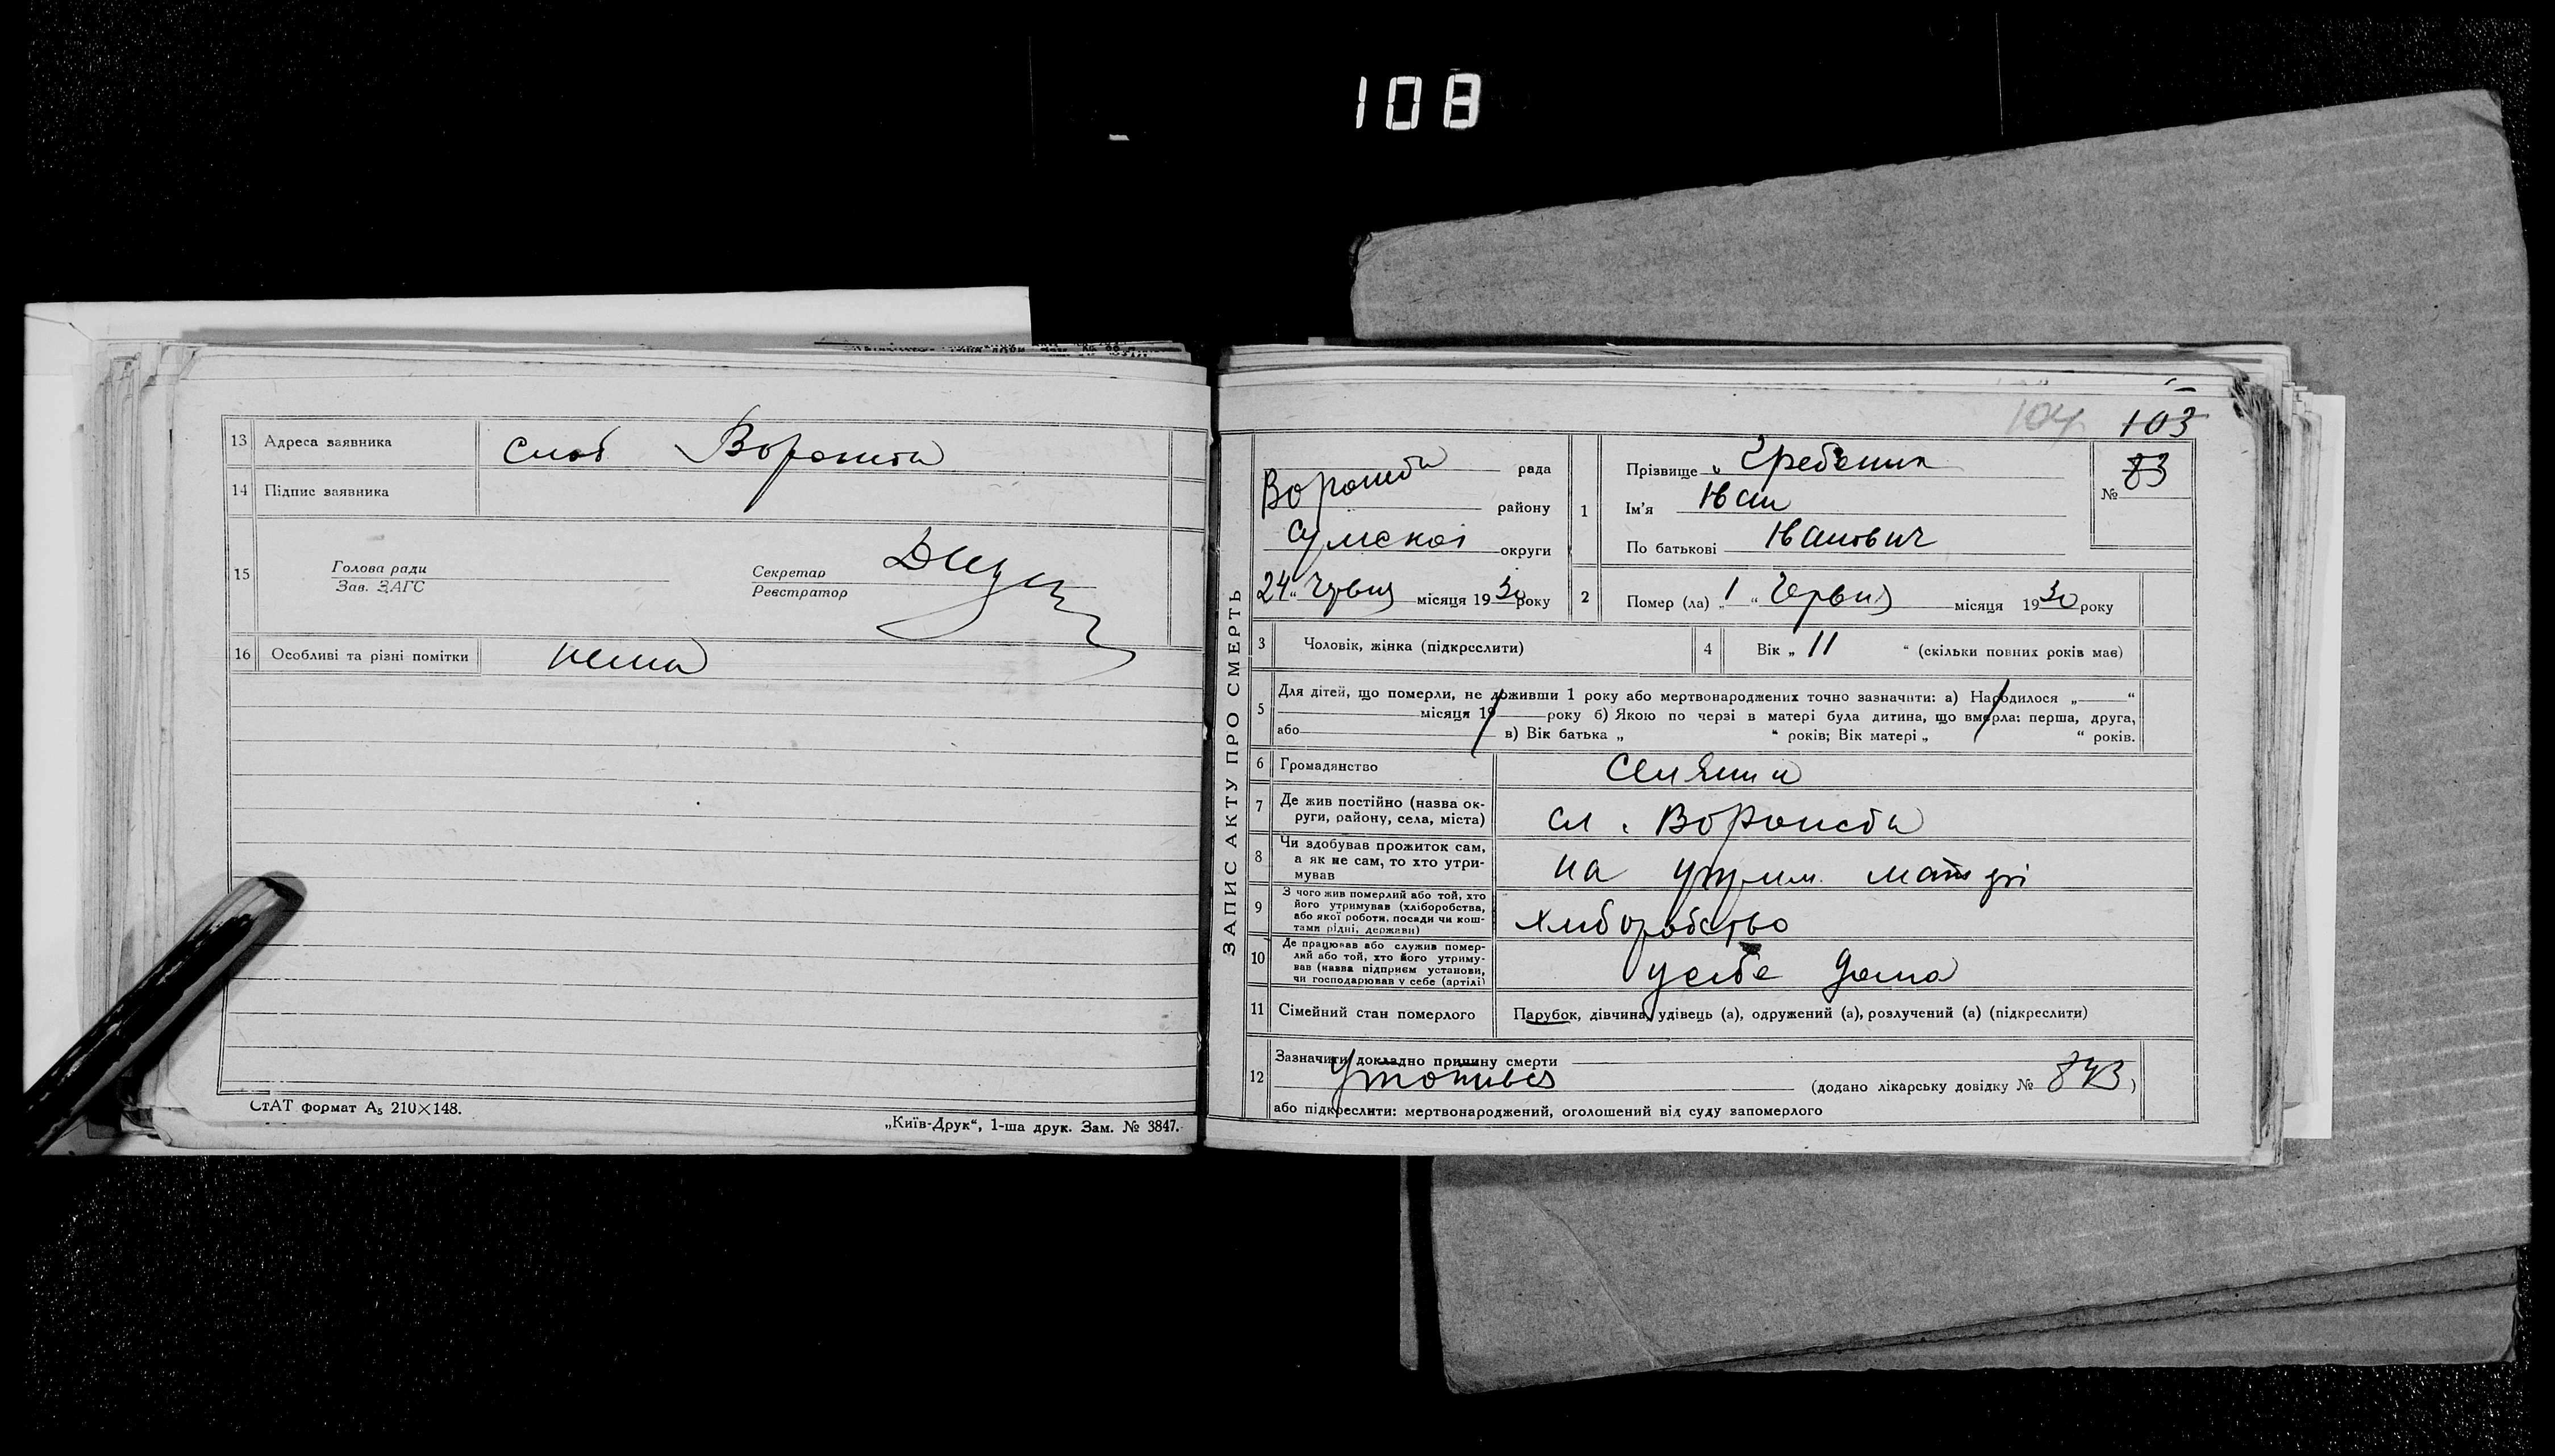 108
13 Адреса заявника слоб Ворожба
14 Підпис заявника
15 Голова ради
Зав. ЗАГС
Секретар
Реєстратор
16 Особливі та різні помітки нема
СтАТ формат А5 210×148.
„Київ-Друк“, 1-ша друк. Зам. № 3847.
104 103
ЗАПИС АКТУ ПРО СМЕРТЬ
Ворожба рада
району
Сумскоі округи
24 “ Червня місяця 1930 року
1 Прізвище Гребеник
Ім'я Іван
По батькові Іванович
№ 83
2 Помер (ла) „ 1 “ Червня місяця 1930 року
3 Чоловік, жінка (підкреслити)
4 Вік „ 11 “ (скільки повних років має)
5 Для дітей, що померли, не доживши 1 року або мертвонароджених точно зазначити: а) Народилося „ “
місяця 19 року б) Якою по черзі в матері була дитина, що вмерла: перша, друга,
або в) Вік батька „ “ років; Вік матері „ “ років.
6 Громадянство Селянин
7 Де жив постійно (назва ок-
руги, району, села, міста) сл. Ворожба
8 Чи здобував прожиток сам,
а як не сам, то хто утри-
мував на утрим. матері
9 З чого жив померлий або той, хто
його утримував (хліборобства,
або якої роботи, посади чи кош-
тами рідні, держави) хліборобство
10 Де працював або служив помер-
лий або той, хто його утриму-
вав (назва підприєм установи,
чи господарював у себе (артілі) у себе дома
11 Сімейний стан померлого Парубок, дівчина, удівець (а), одружений (а), розлучений (а) (підкреслити)
12 Зазначити докладно причину смерти
Утопився (додано лікарську довідку № 843)
або підкреслити: мертвонароджений, оголошений від суду запомерлого